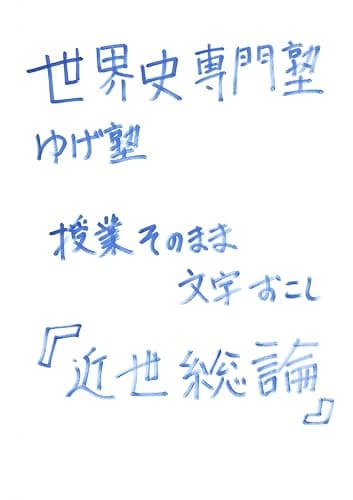 世界史専門塾
ゆげ塾
授業そのまま
文字おこし
『近世総論』